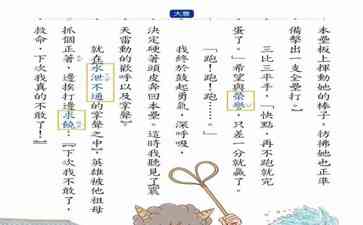 大意
本壘板上揮動她的棒子，彷彿她也正準
備擊出一支全壘打。】
三比三平手，「快點，再不跑就完
蛋了。」希望與榮譽，只差一分就贏了。
「跑！跑！跑……。」
我終於鼓起勇氣，深呼吸，
決定硬著頭皮奔回本壘，這時我聽見了震
天雷動的歡呼以及掌聲】
就在水泄不通的掌聲之中】英雄被他祖母
抓個正著，邊挨打邊求饒，【「下次我不敢了，
救命，下次我真的不敢了！」】